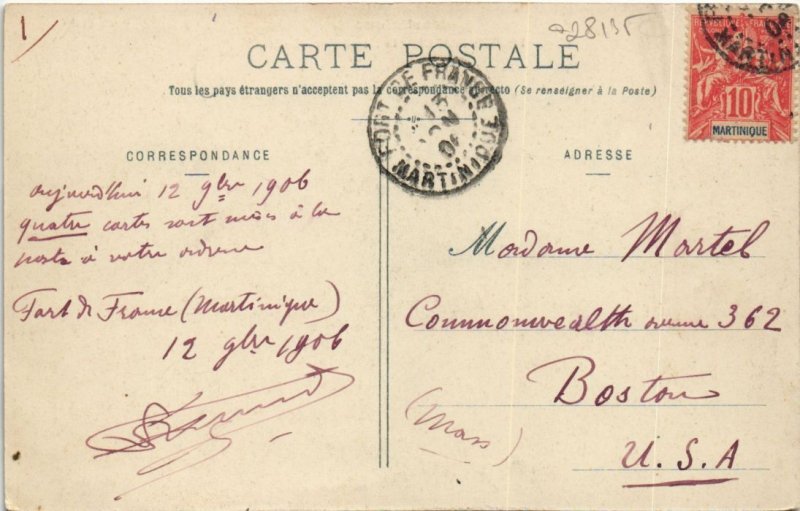 1/
28135
CARTE POSTALE
Tous les pays étrangers n'acceptent pas la correspondance au recto (Se renseigner à la Poste)
REPUBLIQUE FRANÇAISE
10
MARTINIQUE
FORT DE FRANCE
MARTINIQUE
CORRESPONDANCE
aujourd'hui 12 9bre 1906
quatre cartes sont mises à la
poste à votre adresse
Fort de France (Martinique)
12 9bre 1906
ADRESSE
Madame Martel
Commonwealth avenue 362
Boston
(Mass)
U.S.A